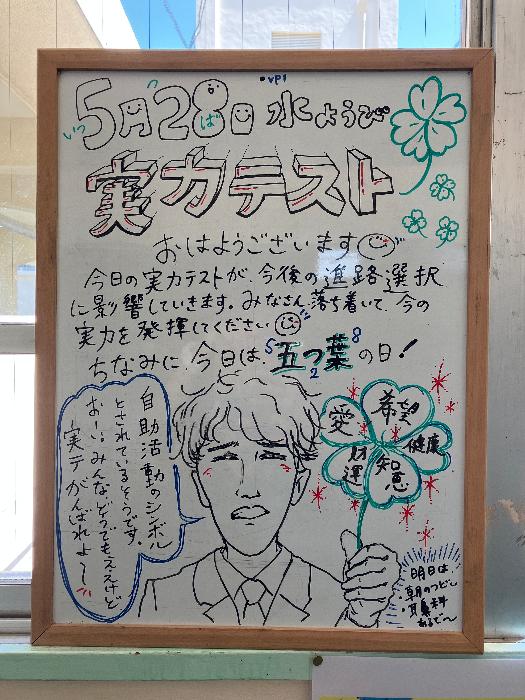 •VP1
5月28日 水ようび
いつ ば
実力テスト
おはようございます
今日の実力テストが、今後の進路選択
に影響していきます。みなさん落ち着いて、今の
実力を発揮してください
ちなみに、今日は、五つ葉の日！
5 2 8
自助活動のシンボル
とされているそうです。
おーい、みんな、どうでもええけど
実テがんばれよ〜
愛
希望
健康
財運
知恵
明日は
朝のつどい
・耳鼻科
あるで〜